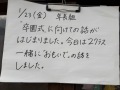 1/23(金) 年長組
卒園式に向けての話が
はじまりました。今日は2クラス
一緒に「おもいで」の話を
しました。